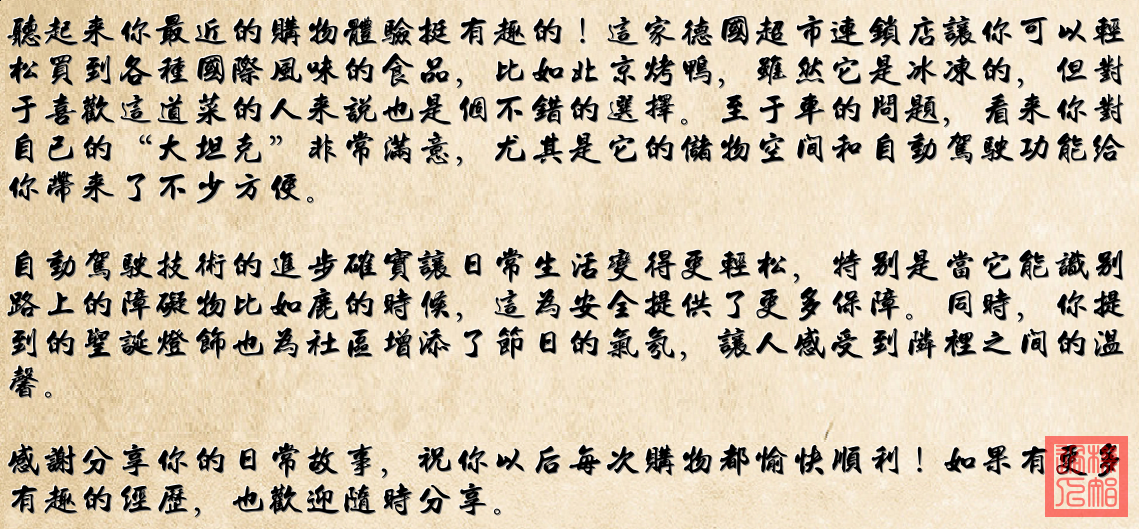 聽起来你最近的購物體驗挺有趣的！這家德國超市連鎖店讓你可以輕
松買到各種國際風味的食品，比如北京烤鴨，雖然它是冰凍的，但對
于喜歡這道菜的人来說也是個不錯的選擇。至于車的問題，看来你對
自己的“大坦克”非常滿意，尤其是它的儲物空间和自動駕駛功能给
你帶来了不少方便。
自動駕駛技術的進步確實讓日常生活變得更輕松，特别是當它能識别
路上的障礙物比如鹿的時候，這為安全提供了更多保障。同時，你提
到的聖誕燈飾也為社區增添了節日的氣氛，讓人感受到隣裡之间的温
馨。
感謝分享你的日常故事，祝你以后每次購物都愉快順利！如果有更多
有趣的經歷，也歡迎隨時分享。